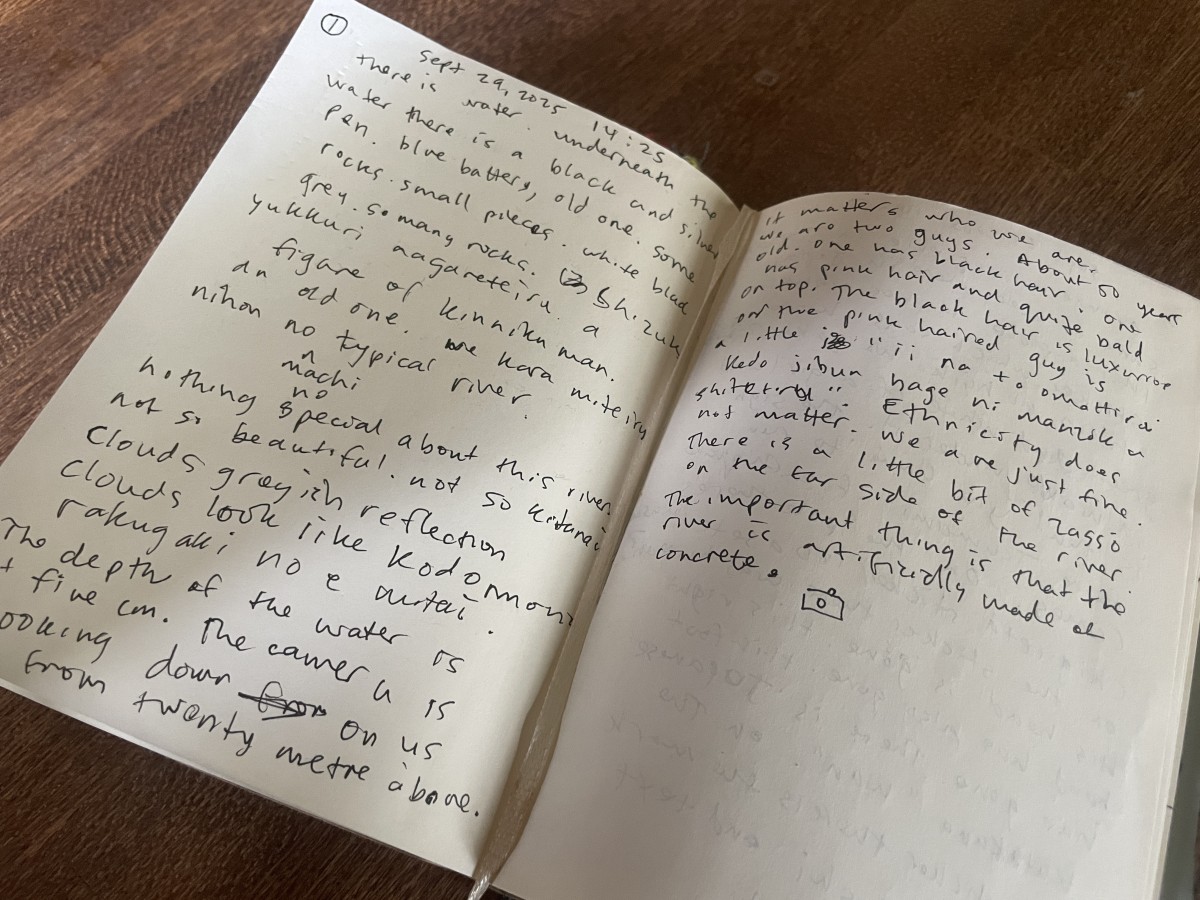 1
Sept 29, 2025 14:25
there is water. underneath the
water there is a black and silver
pen. blue battery, old one. some
rocks. small pieces. white black
grey. so many rocks. Shizuk
yukkuri nagareteiru. a
figure of kinnikuman.
an old one. me kara miteiru
nihon no typical river.
n
machi
no
nothing special about this river
not so beautiful. not so kitanai
clouds greyish reflection
clouds look like kodomono
rakugaki no e mitai.
The depth of the water is
+ five cm. The camera is
ooking down on us
from twenty metre above.
it matters who we are.
we are two guys. About 50 years
old. one has black hair. one
has pink hair and quite bald
on top. The black hair is luxurrou
or the pink haired guy is
a little "ii na to omottiru
kedo jibun hage ni manzoku
shiteiru". Ethnicity does
not matter. we are just fine.
There is a little bit of zasso
on the far side of the river
The important thing is that the
river is artificially made of
concrete.